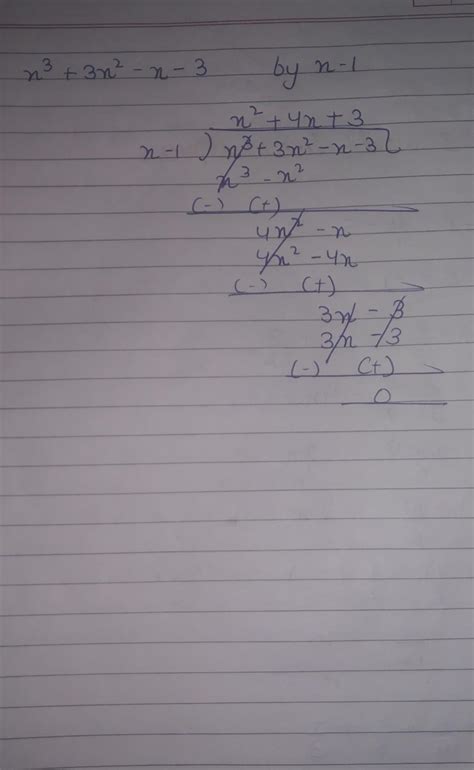 x³ + 3x² - x - 3 by x-1
x² + 4x + 3
x-1 ) x³ + 3x² - x - 3
x³ - x²
(-) (+)
4x² - x
4x² - 4x
(-) (+)
3x - 3
3x - 3
(-) (+)
0